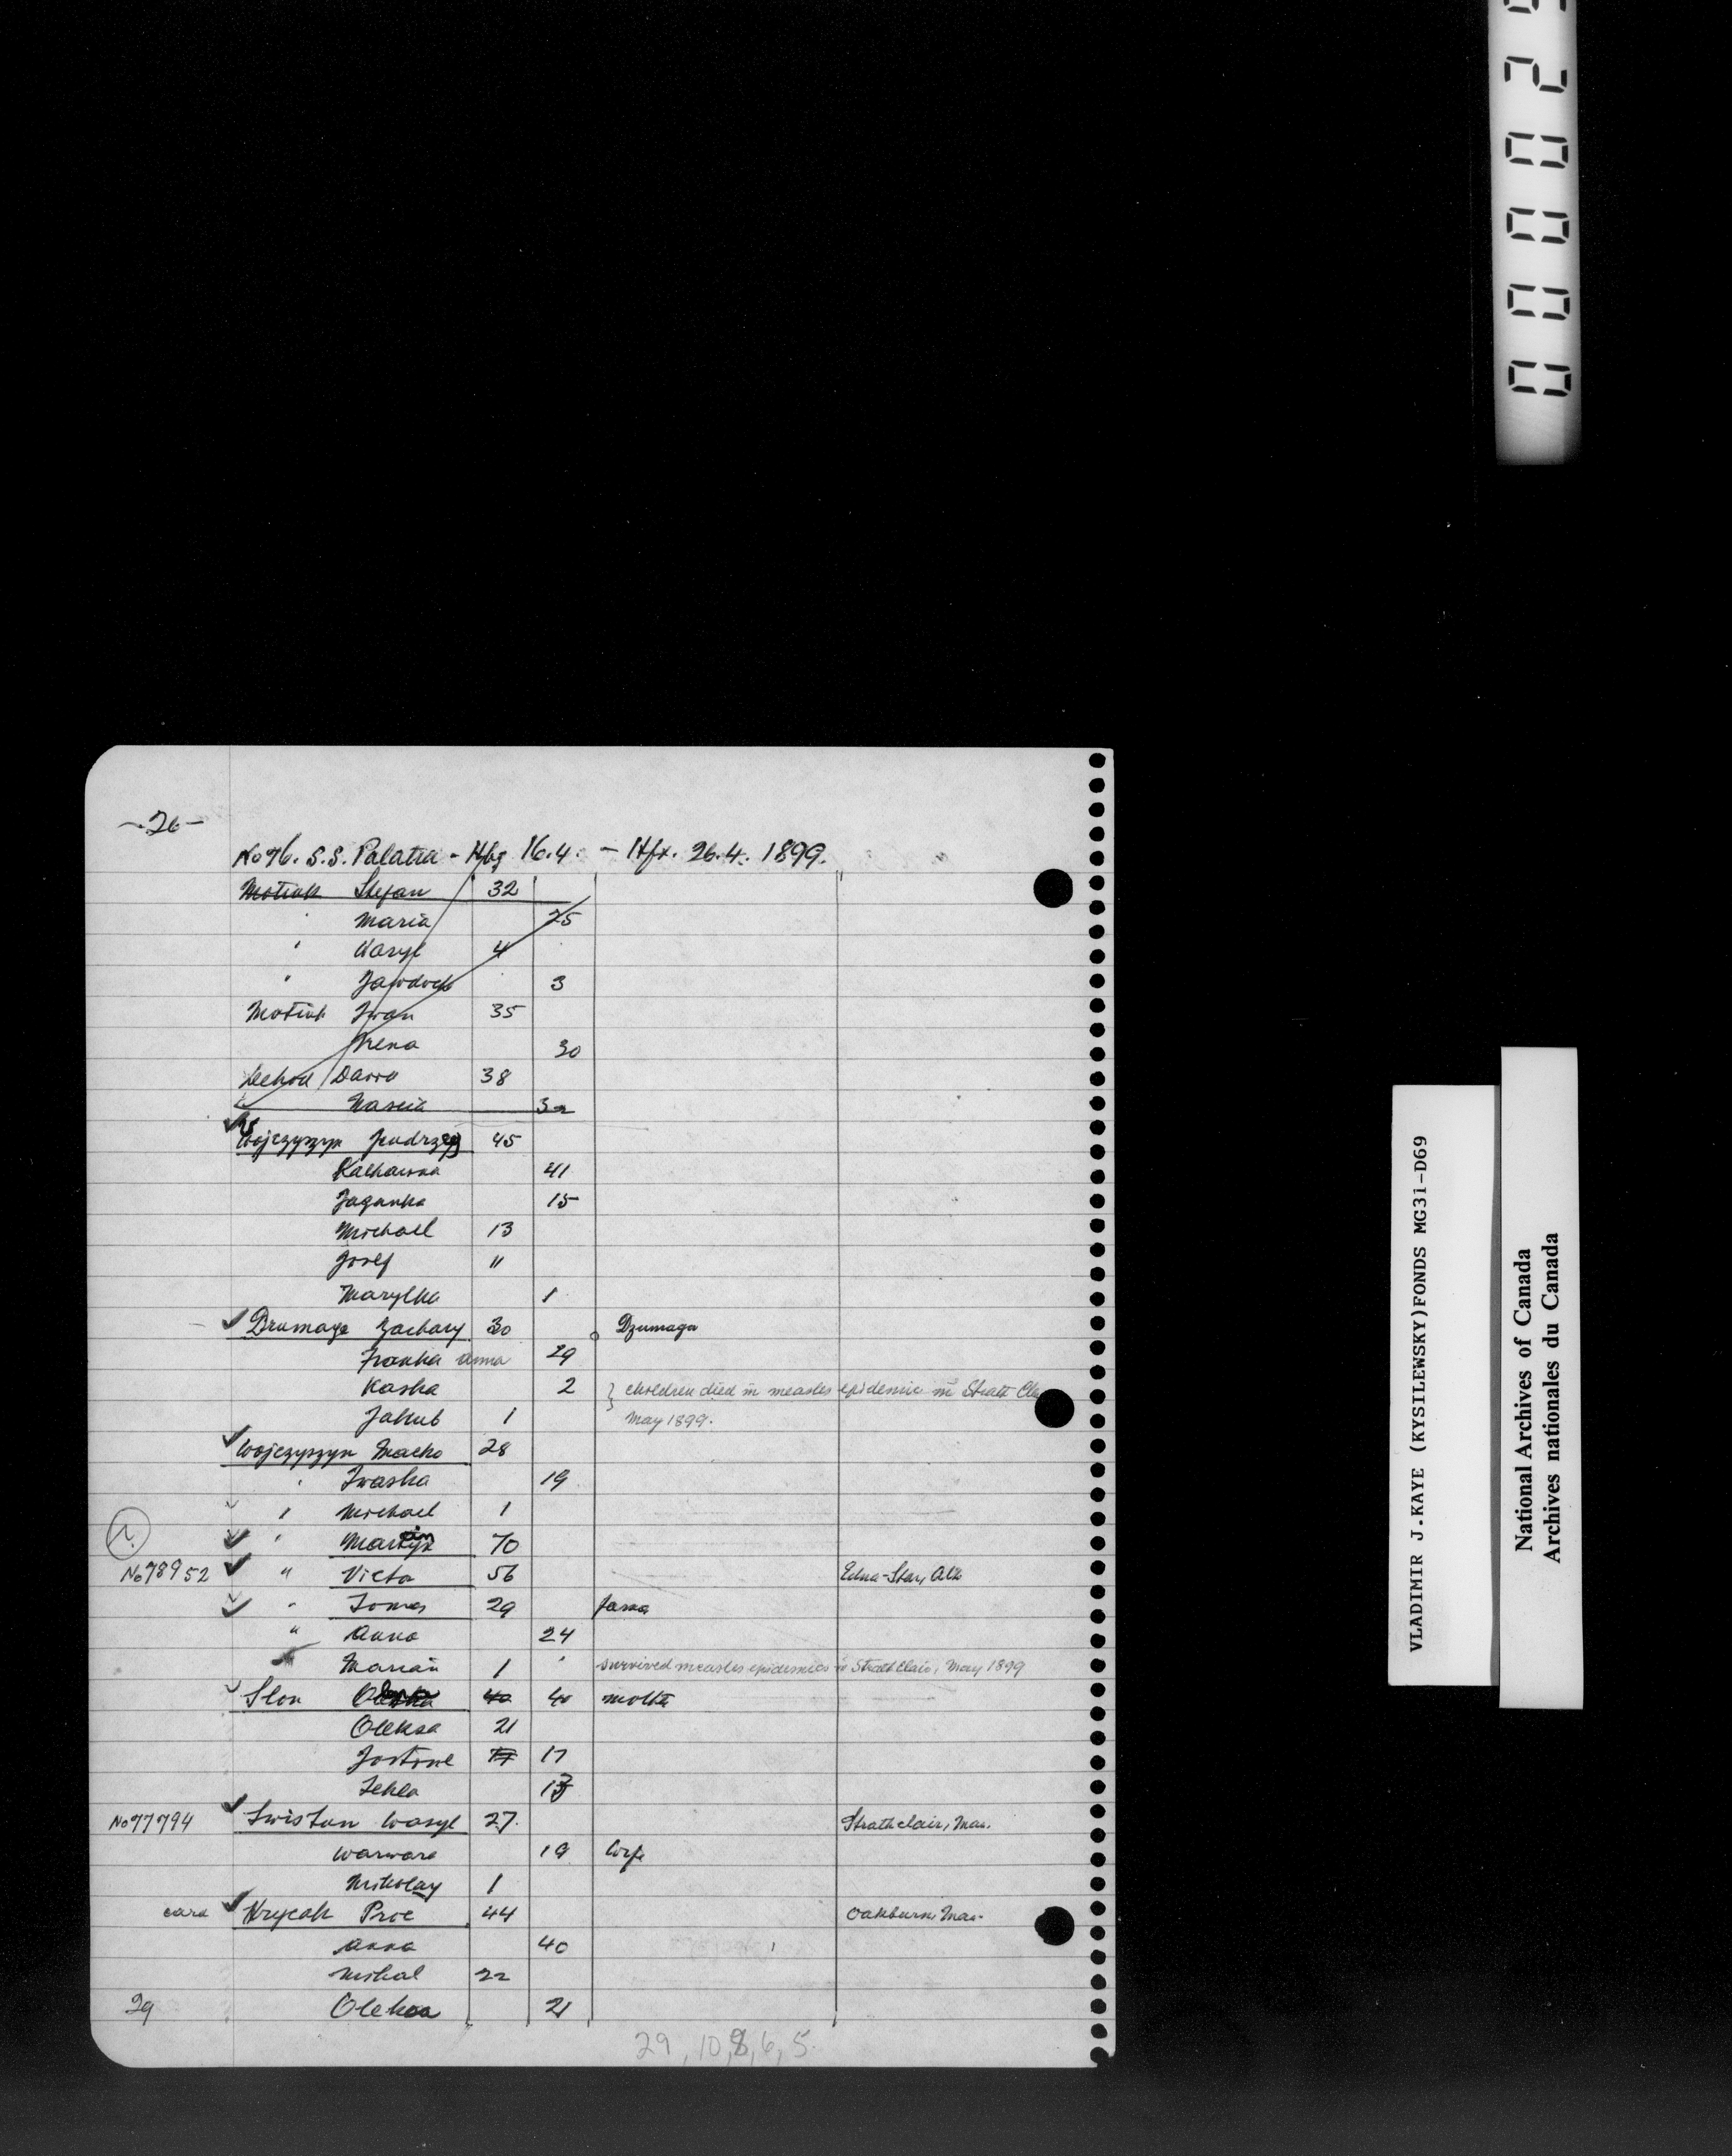 -26-
No 76. S.S. Palatia - Hbg 16.4. - Hfx. 26.4. 1899.
Motiuk Stefan 32
" Maria 25
" Wasyl 4
" Jawdoch 3
Motiuk Iwan 35
Irena 30
38
Nascia 32
Wojczyszyn Jendrzej 45
Katharina 41
Jaganka 15
Michael 13
Josef 11
Marylka 1
Drumaga Zachary 30 Dzumaga
Franka Anna 29
Kaska 2 } children died in measles epidemic in Strath Cla
Jakub 1 May 1899.
Wojczyszyn Macko 28
" Iwaska 19
" Michael 1
" Martin 70
No 78952 " Victa 56 Edna-Star, Alb
" Tomas 29
" Anna 24
Marian 1 " survived measles epidemics in Strathclair, May 1899
Slon 40 40
Oleksa 21
Justine 17 17
Tekla 13
No 77794 Swistun Wasyl 27. Strathclair, Man.
Warwara 19 wife
Mikolay 1
card Hrycak Proc 44 Oakburn, Man.
Anna 40
Mihal 22
29 Oleksa 21
29, 10, 8, 6, 5.
0000 2
VLADIMIR J.KAYE (KYSILEWSKY)FONDS MG31-D69
National Archives of Canada
Archives nationales du Canada